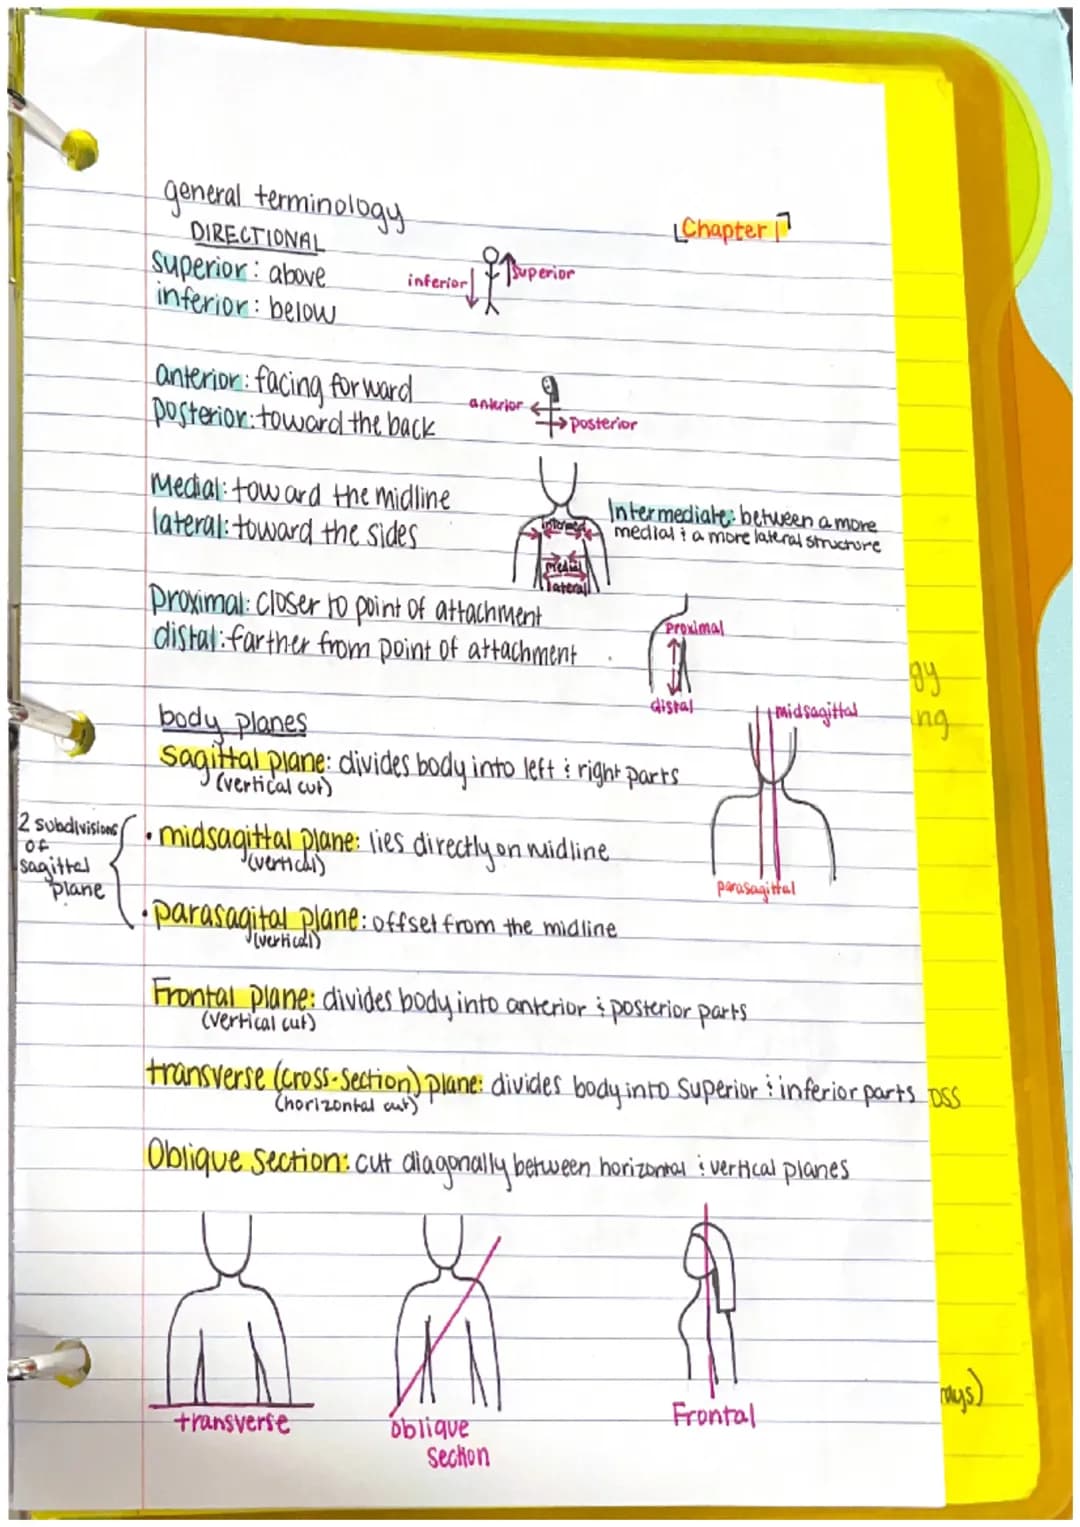 general terminology
[Chapter 1]
DIRECTIONAL
superior: above
inferior: below
inferior
superior
anterior: facing forward
posterior: toward the back
anterior
posterior
Medial: toward the midline
lateral: toward the sides
Intermediate: between a more
medial & a more lateral structure
intermed
medial
lateral
Proximal: closer to point of attachment
distal: farther from point of attachment
proximal
distal
body planes
Sagittal plane: divides body into left & right parts
(vertical cut)
midsagittal
parasagittal
2 subdivisions
of
sagittal
plane
• midsagittal plane: lies directly on midline
(vertical)
• parasagital plane: offset from the midline
(vertical)
Frontal plane: divides body into anterior & posterior parts
(vertical cut)
transverse (cross-section) plane: divides body into superior & inferior parts
(horizontal cut)
Oblique section: cut diagonally between horizontal & vertical planes
transverse
oblique
section
Frontal
gy
ng
oss
rays)